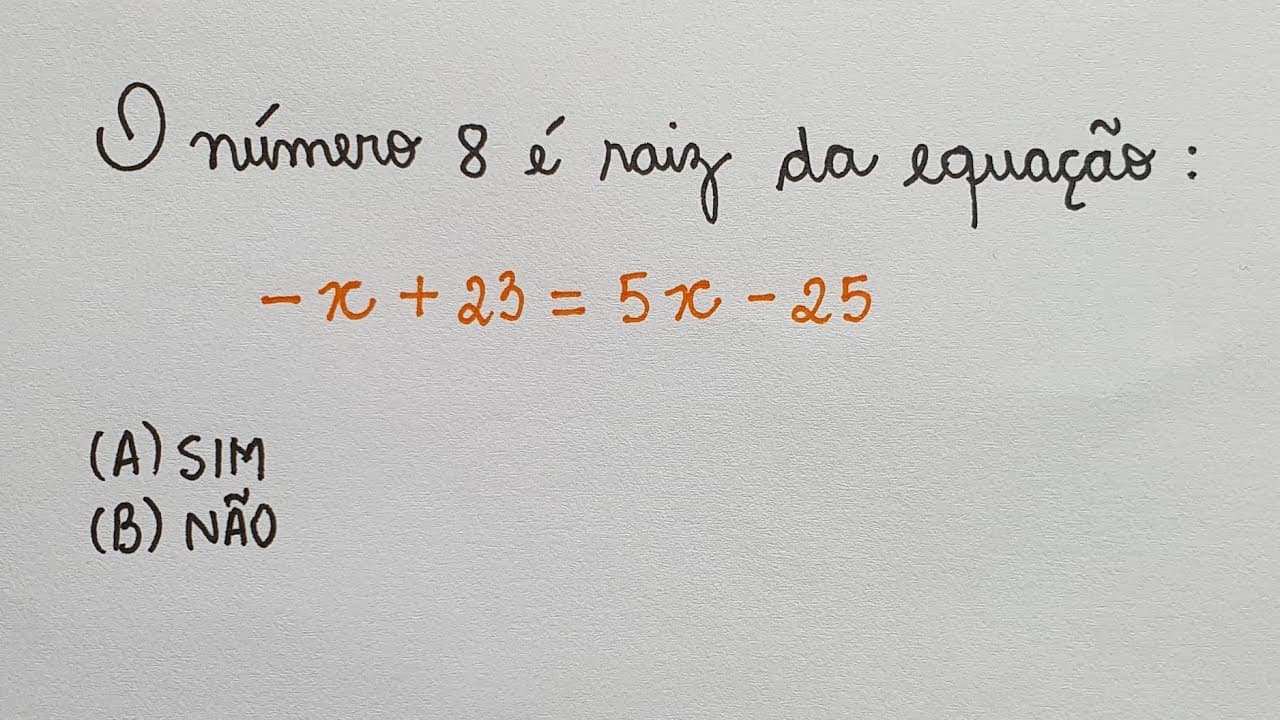 O número 8 é raiz da equação:
-x + 23 = 5x - 25
(A) SIM
(B) NÃO